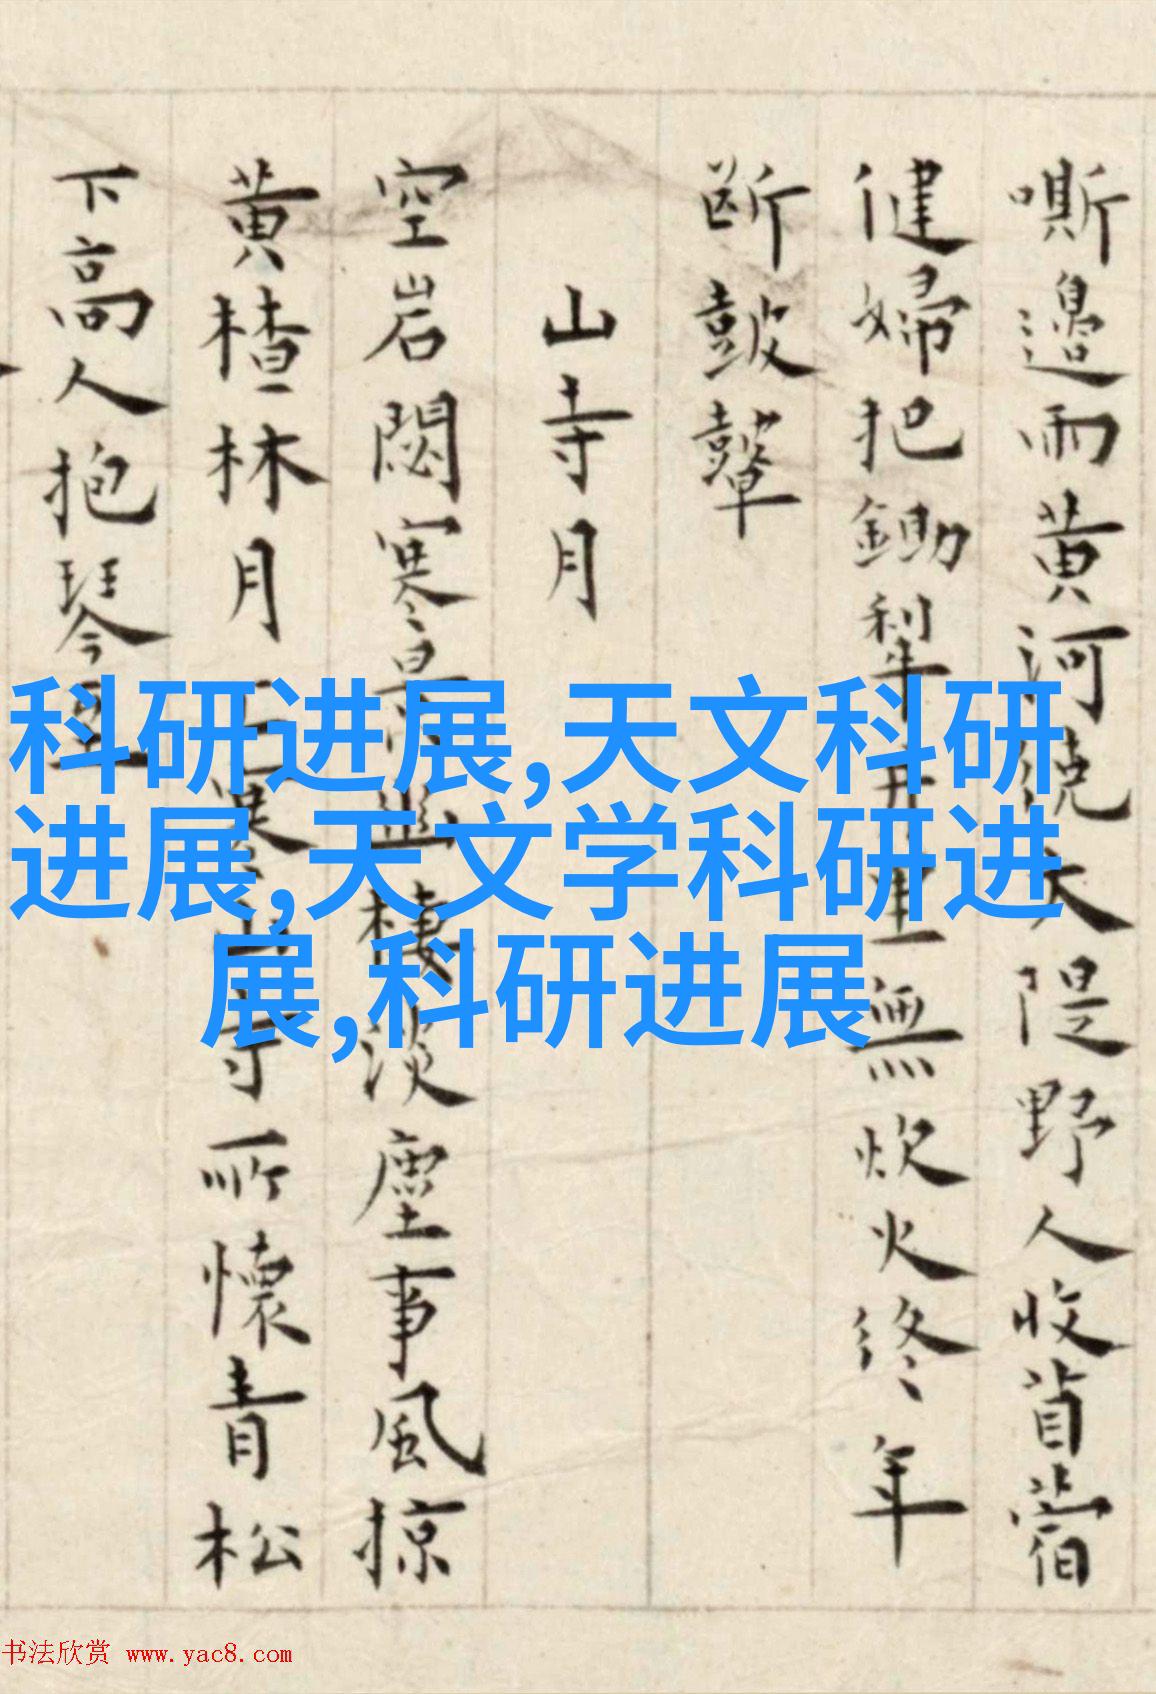 嘶邊雨黄河繞大隄野人收苜蓿
健婦把鋤犁井里無炊火終年
斷鼓鼙
山寺月
空岩閟寒棲淡塵事風掠
黄楂林月上寺所懷青松
下高人抱琴
科研进展,天文科研
进展,天文学科研进
展,科研进展
书法欣赏 www.yac8.com